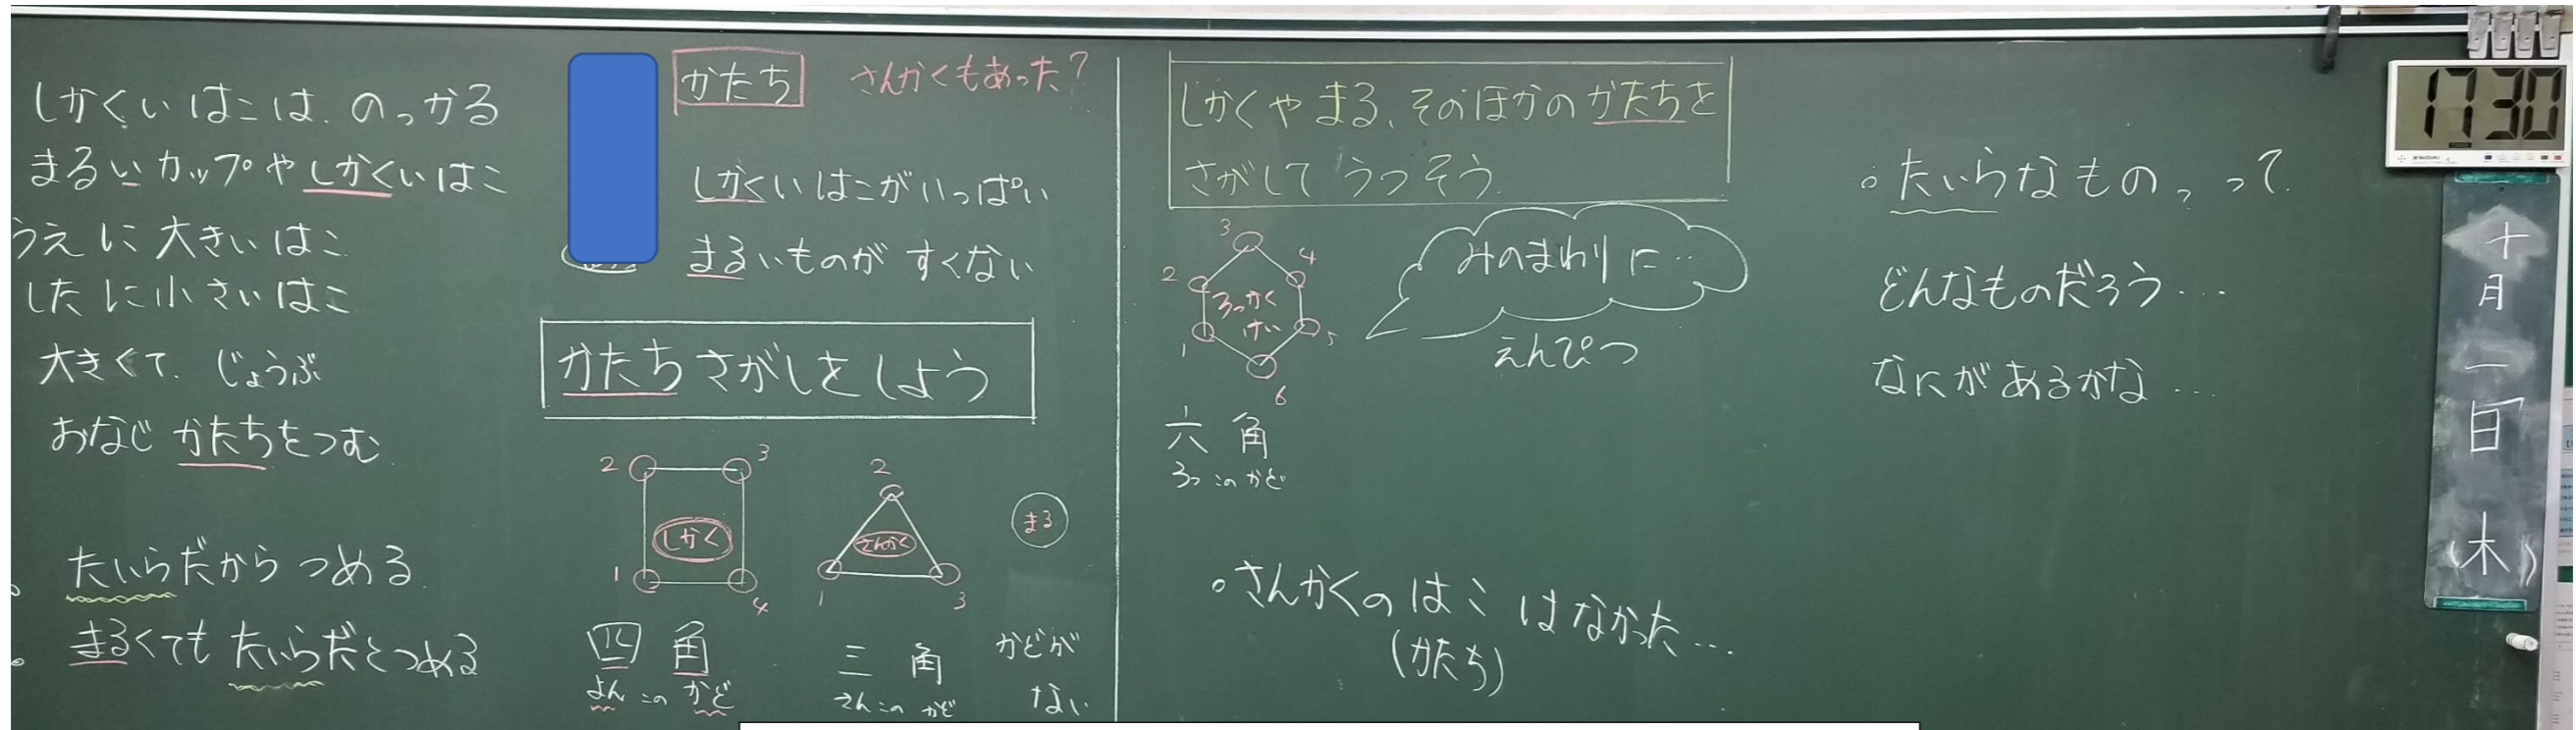 しかくいはこは、のっかる
まるいカップやしかくいはこ
うえに大きいはこ
したに小さいはこ
大きくて、じょうぶ
おなじかたちをつむ
たいらだからつめる
まるくてもたいらだとつめる
かたち
さんかくもあった？
しかくいはこがいっぱい
まるいものがすくない
かたちさがしをしよう
2
3
しかく
1
4
四角
よんこのかど
2
さんかく
1
3
三角
さんこのかど
まる
かどが
ない
しかくやまる、そのほかのかたちを
さがしてうつそう
3
2
4
ろっかく
けい
1
5
6
六角
ろっこのかど
みのまわりに…
えんぴつ
。さんかくのはこはなかった…
(かたち)
。たいらなもの、って
どんなものだろう…
なにがあるかな…
17:30
十月一日(木)